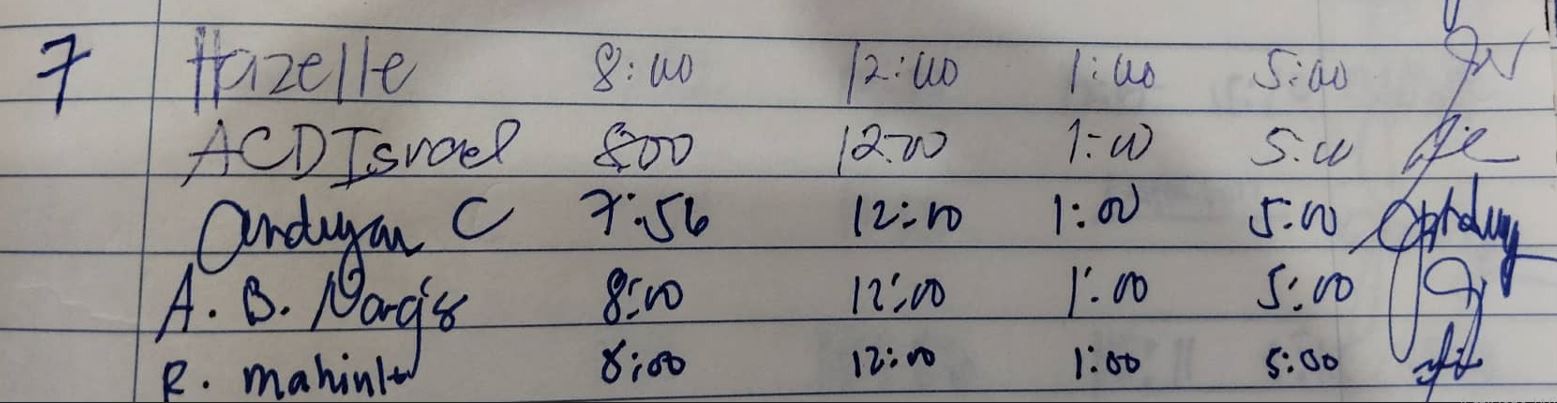 7 Hazelle 8:00 12:00 1:00 5:00
ACD Israel 8:00 12:00 1:00 5:00
Anduyan C 7:56 12:00 1:00 5:00
A. B. 8:00 12:00 1:00 5:00
R. 8:00 12:00 1:00 5:00